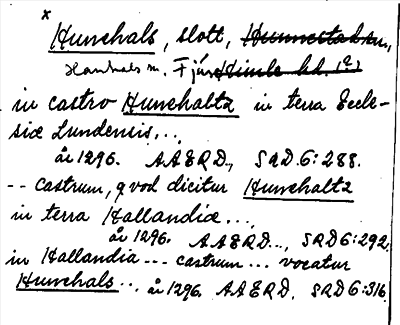 x
Hunehals, slott, Hunnestad sn,
Hanhals sn. Fjäre Himle hd. (?)
in castro Hunehalta in terra Eccle-
siæ Lundensis...
år 1296. AAERD., SRD 6:288.
-- castrum, qvod dicitur Hunehalts
in terra Hallandiæ...
år 1296. AAERD..., SRD 6:292.
in Hallandia --- castrum... vocatur
Hunehals.. år 1296. AAERD. SRD 6:316.